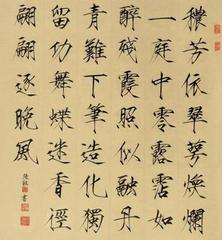 穠芳依翠萼煥爛
一庭中零露霑如
醉殘霞照似融丹
青難下筆造化獨
留功舞蝶迷香徑
翩翩逐晚風
書